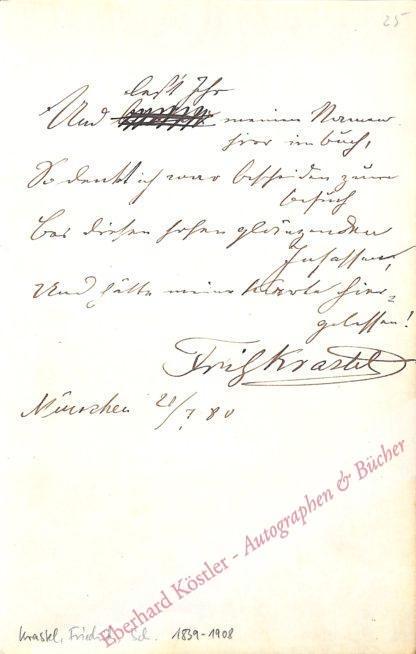 25
lest Ihr
Und meinen Namen
hier im buch,
So denkt ich war bescheiden zum
besuch
bei diesen hohen glänzenden
Insassen,
Und hätte meine Karte hier
gelassen!
Fritz Krastel
München 21/7 80
Eberhard Köstler - Autographen & Bücher
Krastel, Friedrich, Sch. 1839-1908